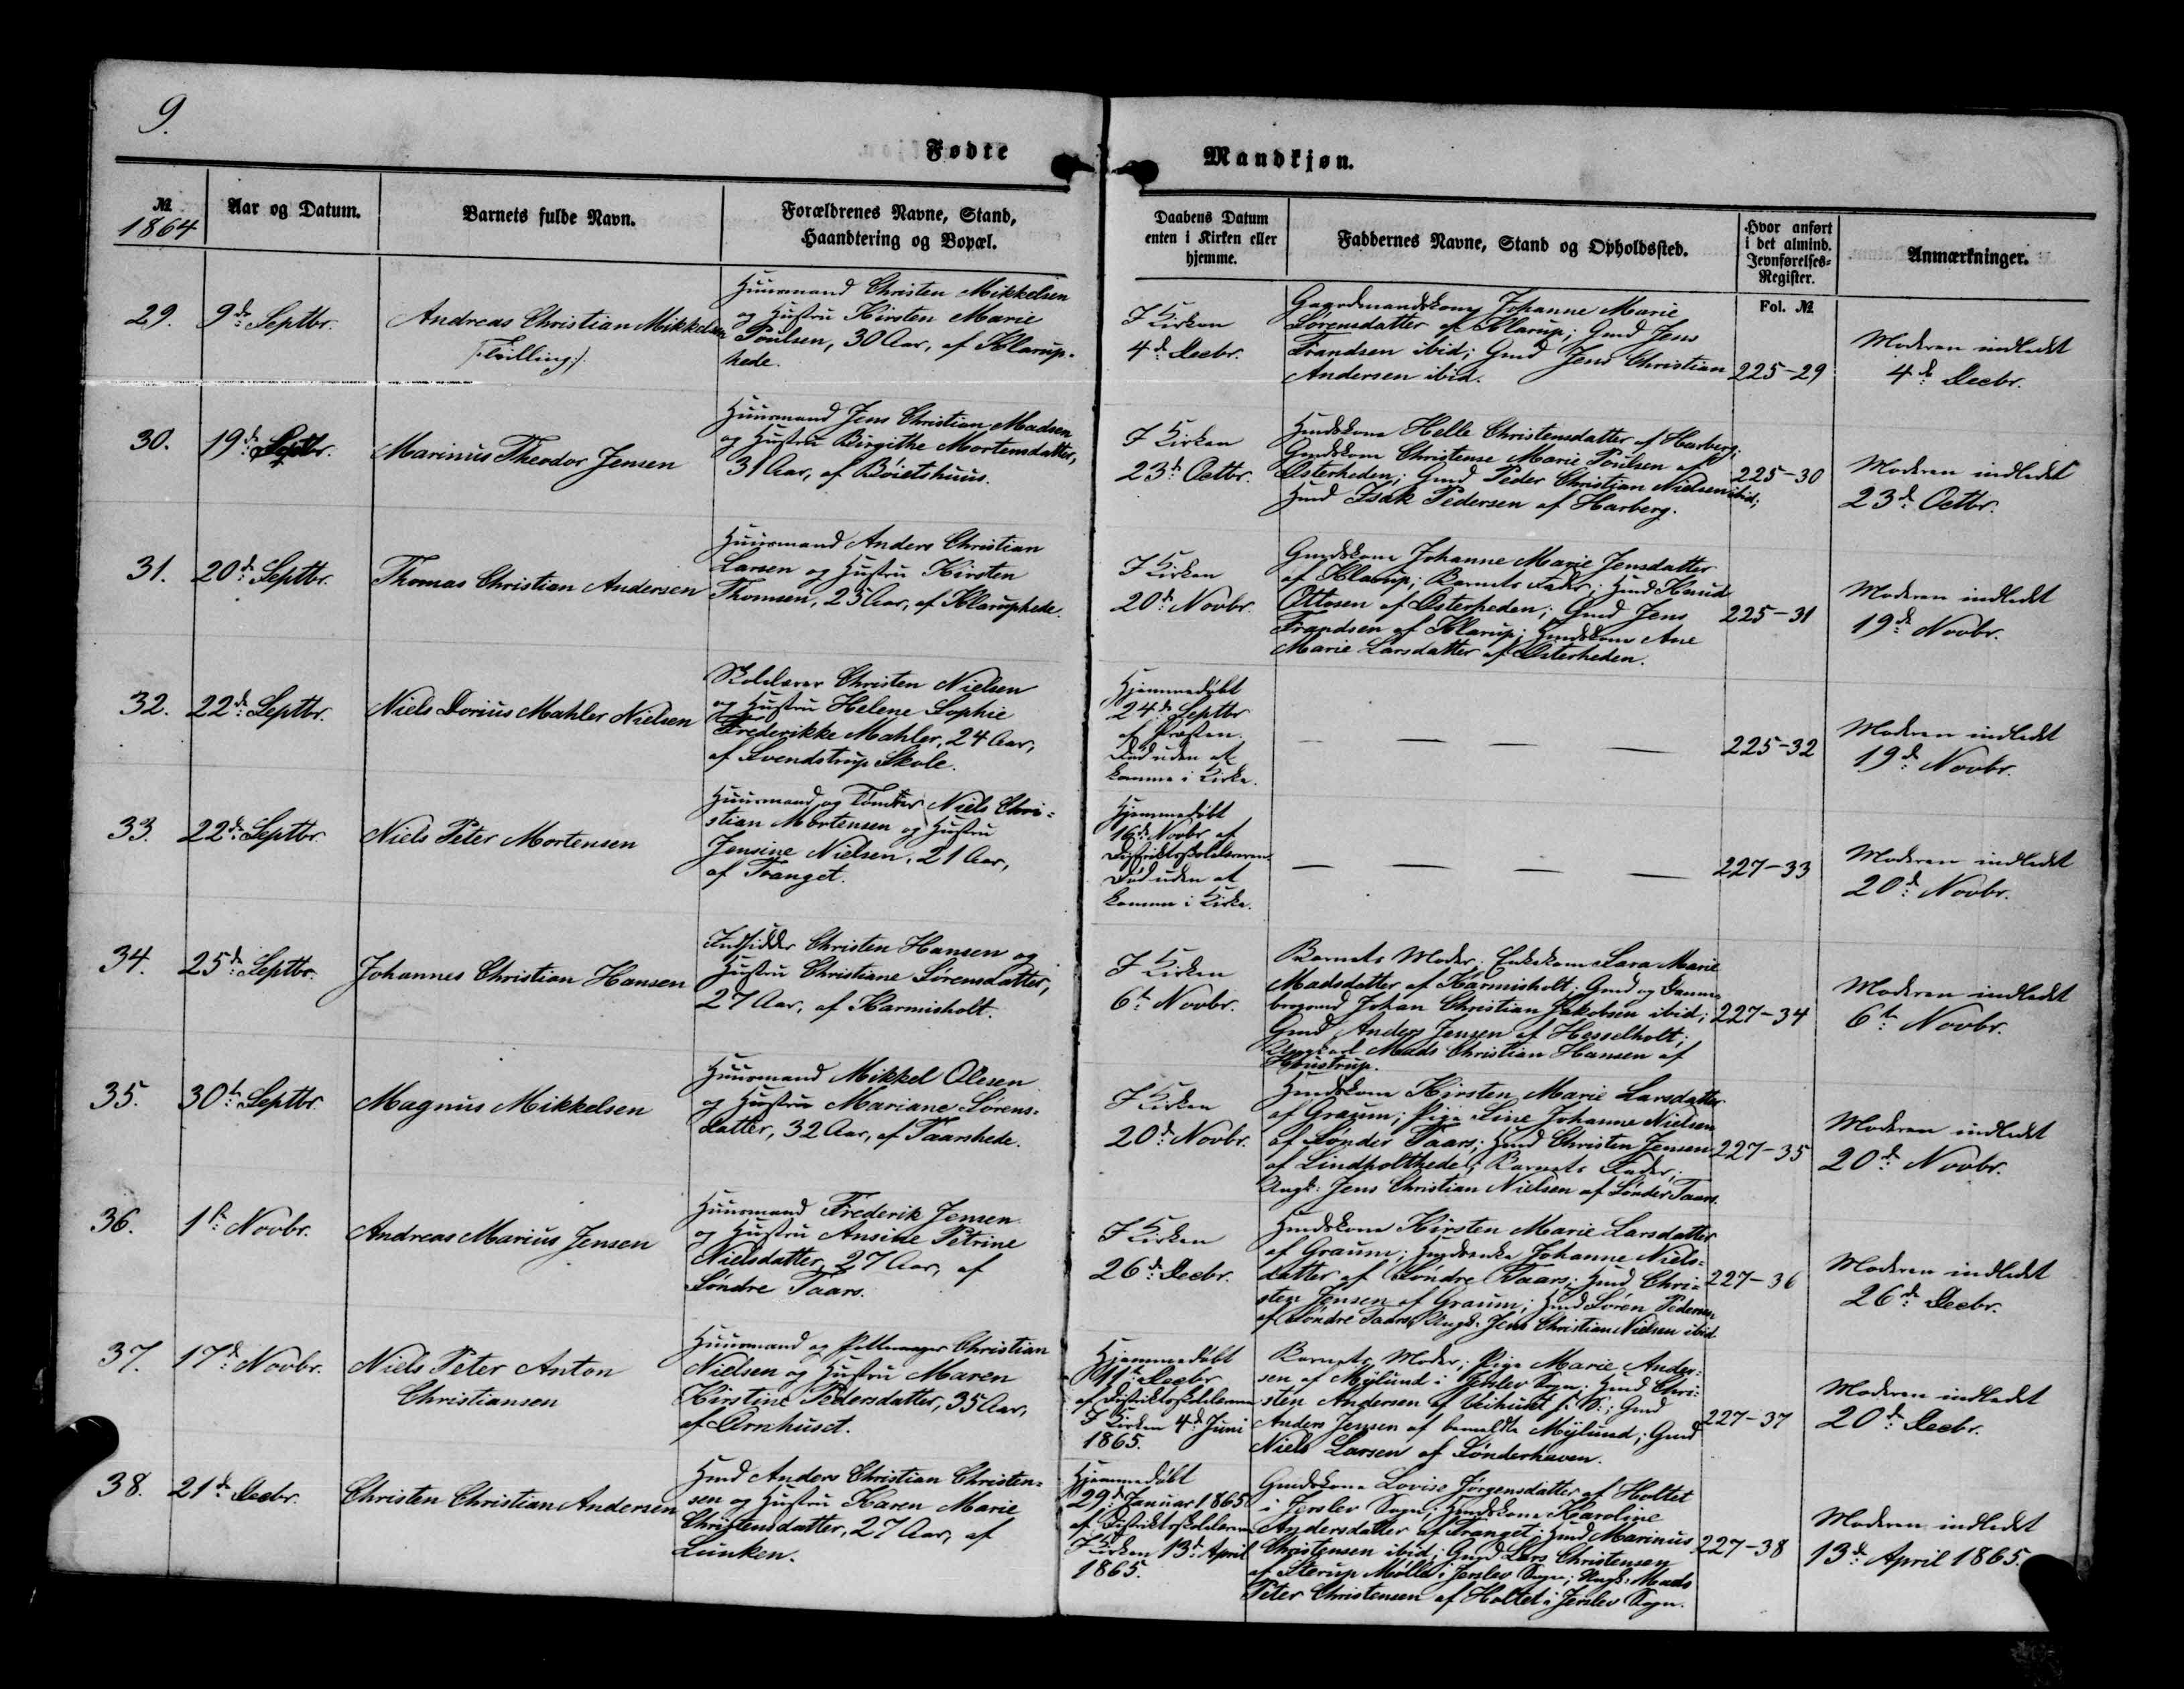 9.
Fødte
Mandkjøn.
№
1864
Aar og Datum.
Barnets fulde Navn.
Forældrenes Navne, Stand,
Haandtering og Bopæl.
Daabens Datum
enten i Kirken eller
hjemme.
Faddernes Navne, Stand og Opholdssted.
Hvor anført
i det almind.
Jevnførelses-
Register.
Fol. №
Anmærkninger.
29.
9de Septbr.
Andreas Christian Mikkelsen
/:Tvilling:/.
Huusmand Christen Mikkelsen
og Hustru Kirsten Marie
Poulsen, 30 Aar, af Klarup-
hede.
I Kirken
4de Decbr.
Gaardmandskone Johanne Marie
Sørensdatter af Klarup; Gmd Jens
Frandsen ibid; Gmd Jens Christian
Andersen ibid.
225-29
Moderen indledt
4de Decbr.
30.
19de Septbr.
Marinus Theodor Jensen
Huusmand Jens Christian Madsen
og Hustru Birgithe Mortensdatter,
31 Aar, af Böietshuus.
I Kirken
23de Octbr.
Hmdskone Helle Christensdatter af Harberg;
Gmdskone Christense Marie Poulsen af
Østerheden; Gmd Peder Christian Nielsen ibid;
Hmd Isak Pedersen af Harberg.
225-30
Moderen indledt
23de Octbr.
31.
20de Septbr.
Thomas Christian Andersen
Huusmand Anders Christian
Larsen og Hustru Kirsten
Thomsen, 25 Aar, af Klaruphede.
I Kirken
20de Novbr.
Gmdskone Johanne Marie Jensdatter
af Klarup; Barnets Fader; Hmd Knud
Ottosen af Østerheden; Gmd Jens
Frandsen af Klarup; Hmdskone Ane
Marie Larsdatter af Østerheden.
225-31
Moderen indledt
19de Novbr.
32.
22de Septbr.
Niels Dorius Mahler Nielsen
Skolelærer Christen Nielsen
og Hustru Helene Sophie
Frederikke Mahler, 24 Aar,
af Svendstrup Skole.
Hjemmedøbt
24de Septbr
af Præsten.
Død uden at
komme i Kirke.
— — — —
225-32
Moderen indledt
19de Novbr.
33.
22de Septbr
Niels Peter Mortensen
Huusmand og Tömrer Niels Chri-
stian Mortensen og Hustru
Jensine Nielsen, 21 Aar,
af Tranget.
Hjemmedøbt
16de Novbr af
Distriktsskolelæreren.
Død uden at
komme i Kirke.
— — — —
227-33
Moderen indledt
20de Novbr.
34.
25de Septbr.
Johannes Christian Hansen
Indsidder Christen Hansen og
Hustru Christiane Sørensdatter,
27 Aar, af Karmisholt.
I Kirken
6te Novbr.
Barnets Moder; Enkekone Lara Marie
Madsdatter af Karmisholt; Gmd og Danne-
brogsmd Johan Christian Jakobsen ibid;
Gmd Anders Jensen af Hesselholt;
Ungkarl Mads Christian Hansen af
227-34
Moderen indledt
6te Novbr.
35.
30te Septbr.
Magnus Mikkelsen
Huusmand Mikkel Olesen
og Hustru Mariane Sørens-
datter, 32 Aar, af Taarshede.
I Kirken
20de Novbr.
Hmdskone Kirsten Marie Larsdatter
af Graum; Pige Sine Johanne Nielsen
af Sønder Taars; Hmd Christen Jensen
af Lindholthede; Barnets Fader;
Ungk: Jens Christian Nielsen af Sønder Taars.
227-35
Moderen indledt
20de Novbr.
36.
1ste Novbr.
Andreas Marius Jensen
Huusmand Frederik Jensen
og Hustru Ansine Petrine
Nielsdatter, 27 Aar, af
Søndre Taars.
I Kirken
26de Decbr.
Hmdskone Kirsten Marie Larsdatter
af Graum; Hmdsenke Johanne Niels-
datter af Søndre Taars; Hmd Chri-
sten Jensen af Graum; Hmd Søren Pedersen
af Søndre Taars; Ungk: Jens Christian Nielsen ibid.
227-36
Moderen indledt
26de Decbr.
37.
17de Novbr.
Niels Peter Anton
Christiansen
Huusmand og Pottemager Christian
Nielsen og Hustru Maren
Kirstine Pedersdatter, 35 Aar,
af Ornhuset.
Hjemmedøbt
11te Decbr
af Distriktsskolelæreren
I Kirken 4de Juni
1865.
Barnets Moder; Pige Marie Ander-
sen af Mylund i Jerslev Sogn; Hmd Chri-
sten Andersen af
Anders Jensen af bemeldte Mylund; Gmd
Niels Larsen af Sønderhaven.
227-37
Moderen indledt
20de Decbr.
38.
21de Decbr.
Christen Christian Andersen
Hmd Anders Christian Christen-
sen og Hustru Karen Marie
Christensdatter, 27 Aar, af
Lunken.
Hjemmedøbt
29de Januar 1865
af Distriktsskolelæreren
I Kirken 13de April
1865.
Gmdskone Lovise Jørgensdatter af Holtet
i Jerslev Sogn; Hmdskone Karoline
Andersdatter af Tranget; Hmd Marinus
Christensen ibid; Gmd Lars Christensen
af Sterup Mølle i Jerslev Sogn; Ungk: Mads
Peter Christensen af Holtet i Jerslev Sogn.
227-38
Moderen indledt
13de April 1865.